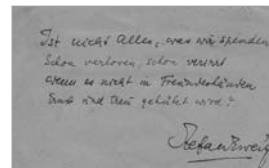 Ist nicht Alles, was wir spenden
Schon verloren, schon verirrt
Wenn es nicht in Freundeshänden
Ernst und treu gehütet wird?
Stefan Zweig